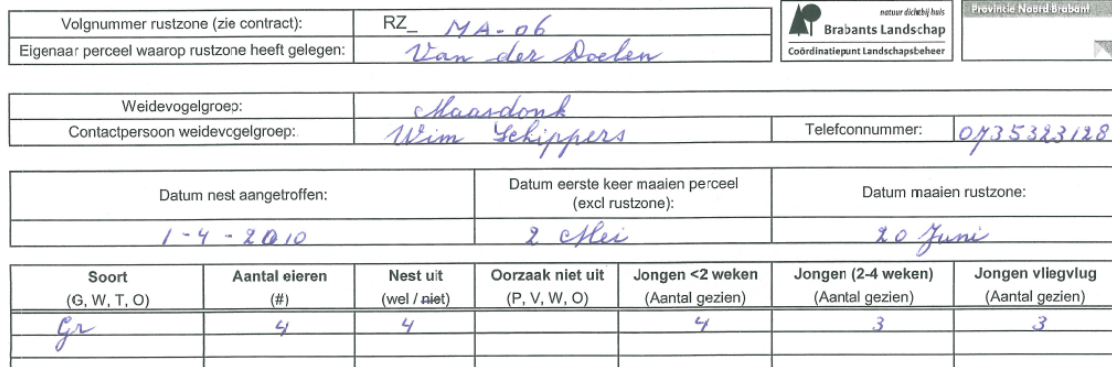 Volgnummer rustzone (zie contract): RZ_ MA-06
Eigenaar perceel waarop rustzone heeft gelegen: Van der Doelen
natuur dichtbij huis
Brabants Landschap
Coördinatiepunt Landschapsbeheer
Provincie Noord Brabant
Weidevogelgroep: Maasdonk
Contactpersoon weidevogelgroep: Wim Schippers Telefoonnummer: 0735323128
Datum nest aangetroffen: Datum eerste keer maaien perceel (excl rustzone): Datum maaien rustzone:
1-4-2010 2 Mei 20 Juni
Soort (G, W, T, O) Aantal eieren (#) Nest uit (wel / niet) Oorzaak niet uit (P, V, W, O) Jongen <2 weken (Aantal gezien) Jongen (2-4 weken) (Aantal gezien) Jongen vliegvlug (Aantal gezien)
Gr 4 4 4 3 3